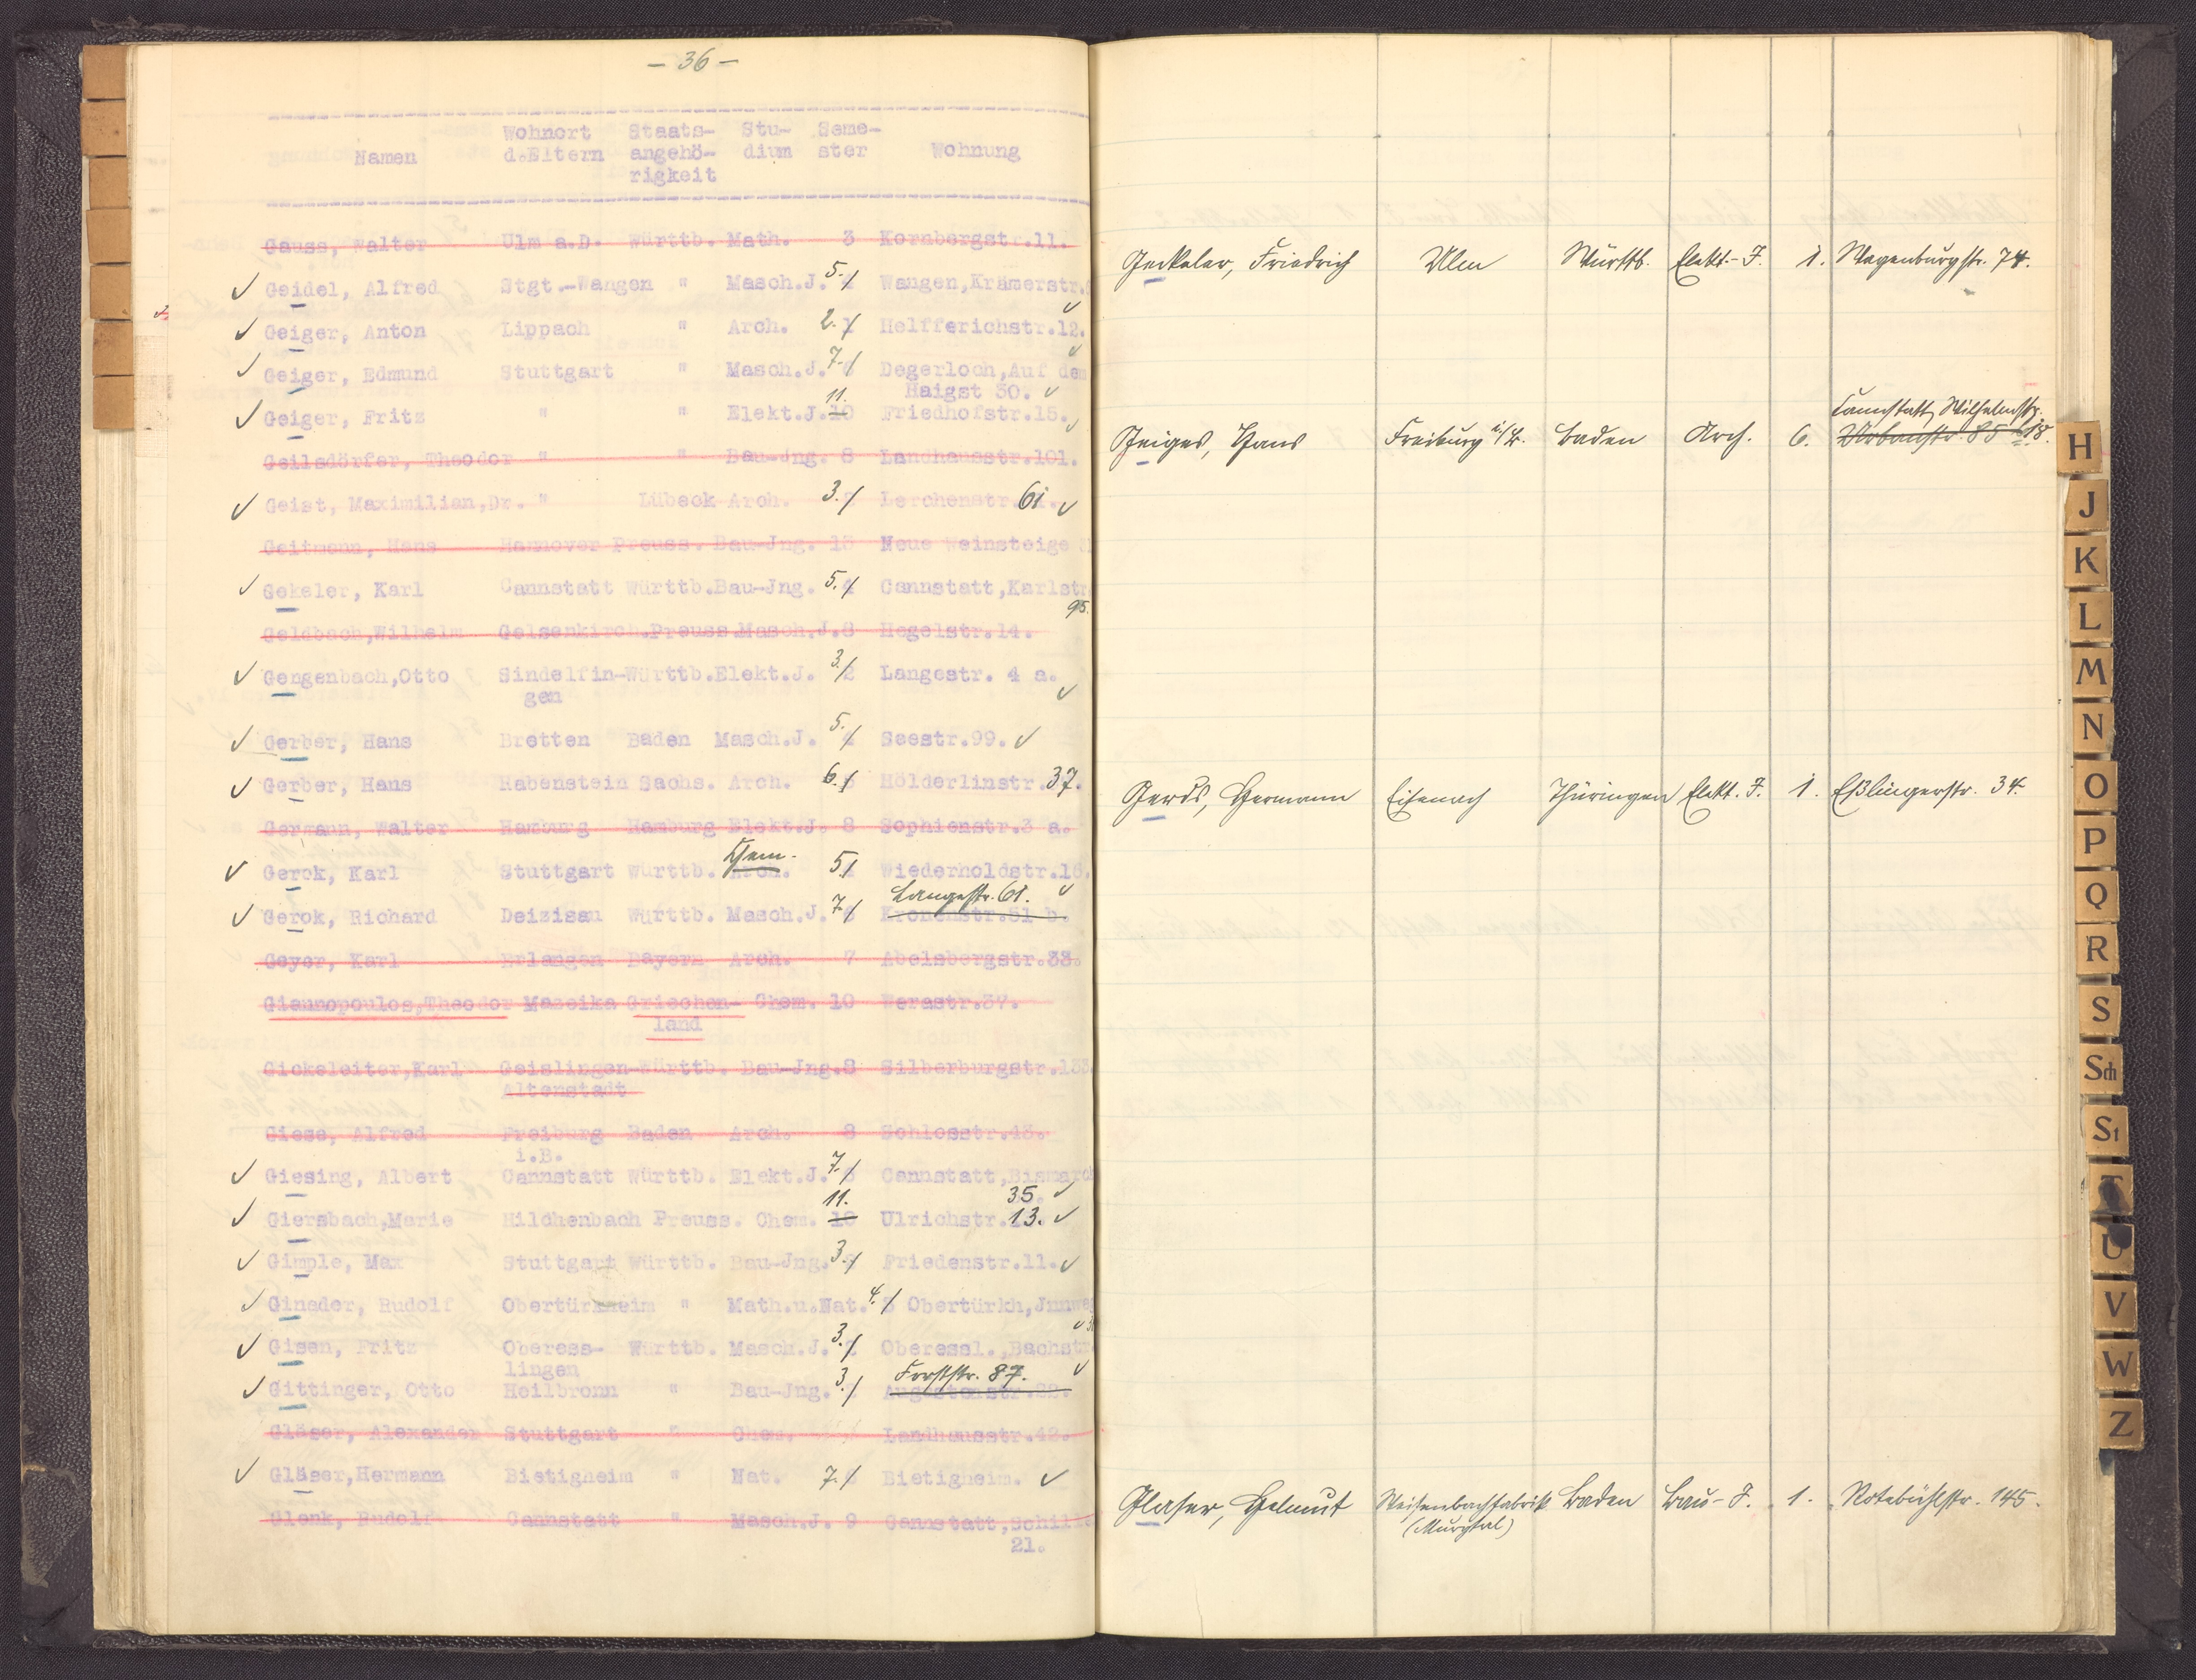 - 36 -
Wohnort Staats- Stu- Seme-
Namen d.Eltern angehö- dium ster Wohnung
rigkeit
Gauss, Walter Ulm a.D. Württb. Math. 3 Kornbergstr.11.
Geidel, Alfred Stgt.-Wangen " Masch.J. 5. Wangen,Krämerstr.
Geiger, Anton Lippach " Arch. 2. 1 Helfferichstr.12.
Geiger, Edmund Stuttgart " Masch.J. 7. Degerloch,Auf dem
Haigst 30.
Geiger, Fritz " " Elekt.J. 11. 10 Friedhofstr.15.
Geilsdörfer, Theodor " " Bau-Jng. 8 Landhausstr.101.
Geist, Maximilian,Dr. " Lübeck Arch. 3. Lerchenstr. 61
Geitmann, Hans Hannover Preuss. Bau-Jng. Neue Weinsteige
Gekeler, Karl Cannstatt Württb. Bau-Jng. 5. 4 Cannstatt,Karlstr
95.
Geldbach,Wilhelm Gelsenkirch.Preuss.Masch.J.8 Hegelstr.14.
Gengenbach,Otto Sindelfin- Württb. Elekt.J. 3. 2 Langestr. 4 a.
gen
Gerber, Hans Bretten Baden Masch.J. 5. 4 Seestr.99.
Gerber, Hans Rabenstein Sachs. Arch. 6. Hölderlinstr. 37.
Germann, Walter Hamburg Hamburg Elekt.J. 8 Sophienstr.3 a.
Chem.
Gerok, Karl Stuttgart Württb. Arch. 5. Wiederholdstr.16.
Langestr. 61.
Gerok, Richard Deizisau Württb. Masch.J. 7. 6 Kronenstr.51 b.
Geyer, Karl Erlangen Bayern Arch. 7 Abelsbergstr.33.
Giannopoulos,Theodor Maseika Griechen- Chem. 10 Werastr.37.
land
Gickeleiter,Karl Geislingen- Württb. Bau-Jng.8 Silberburgstr.133.
Altenstadt
Giese, Alfred Freiburg Baden Arch. 8 Schlosstr.43.
i.B.
Giesing, Albert Cannstatt Württb. Elekt.J. 7. Cannstatt,Bismarck
35.
Giersbach,Marie Hilchenbach Preuss. Chem. 11. 10 Ulrichstr. 13.
Gimple, Max Stuttgart Württb. Bau-Jng. 3. Friedenstr.11.
Ginader, Rudolf Obertürkheim " Math.u.Nat. 4. 3 Obertürkh,Jnnweg
Gisen, Fritz Oberess- Württb. Masch.J. 3. 2 Oberessl.,Bachstr
lingen
Forststr. 87.
Gittinger, Otto Heilbronn " Bau-Jng. 3. Augustenstr.
Gläser, Alexander Stuttgart " Chem. Landhausstr.42.
Gläser,Hermann Bietigheim " Nat. 7. Bietigheim.
Glenk, Rudolf Cannstatt " Masch.J. 9 Cannstatt,Schille
21.
Geckeler, Friedrich Ulm Württb. Elekt.-J. 1. Wagenburgstr. 74.
Cannstatt, Wilhelmstr.
Geiges, Hans Freiburg i/Br. Baden Arch. 6. Urbanstr. 85 18.
Gerds, Hermann Eisenach Thüringen Elekt. J. 1. Eßlingerstr. 34.
Glaser, Helmut Weisenbachfabrik Baden Bau-J. 1. Rotebühlstr. 145.
(Murgtal)
H
J
K
L
M
N
O
P
Q
R
S
Sch
St
T
U
V
W
Z